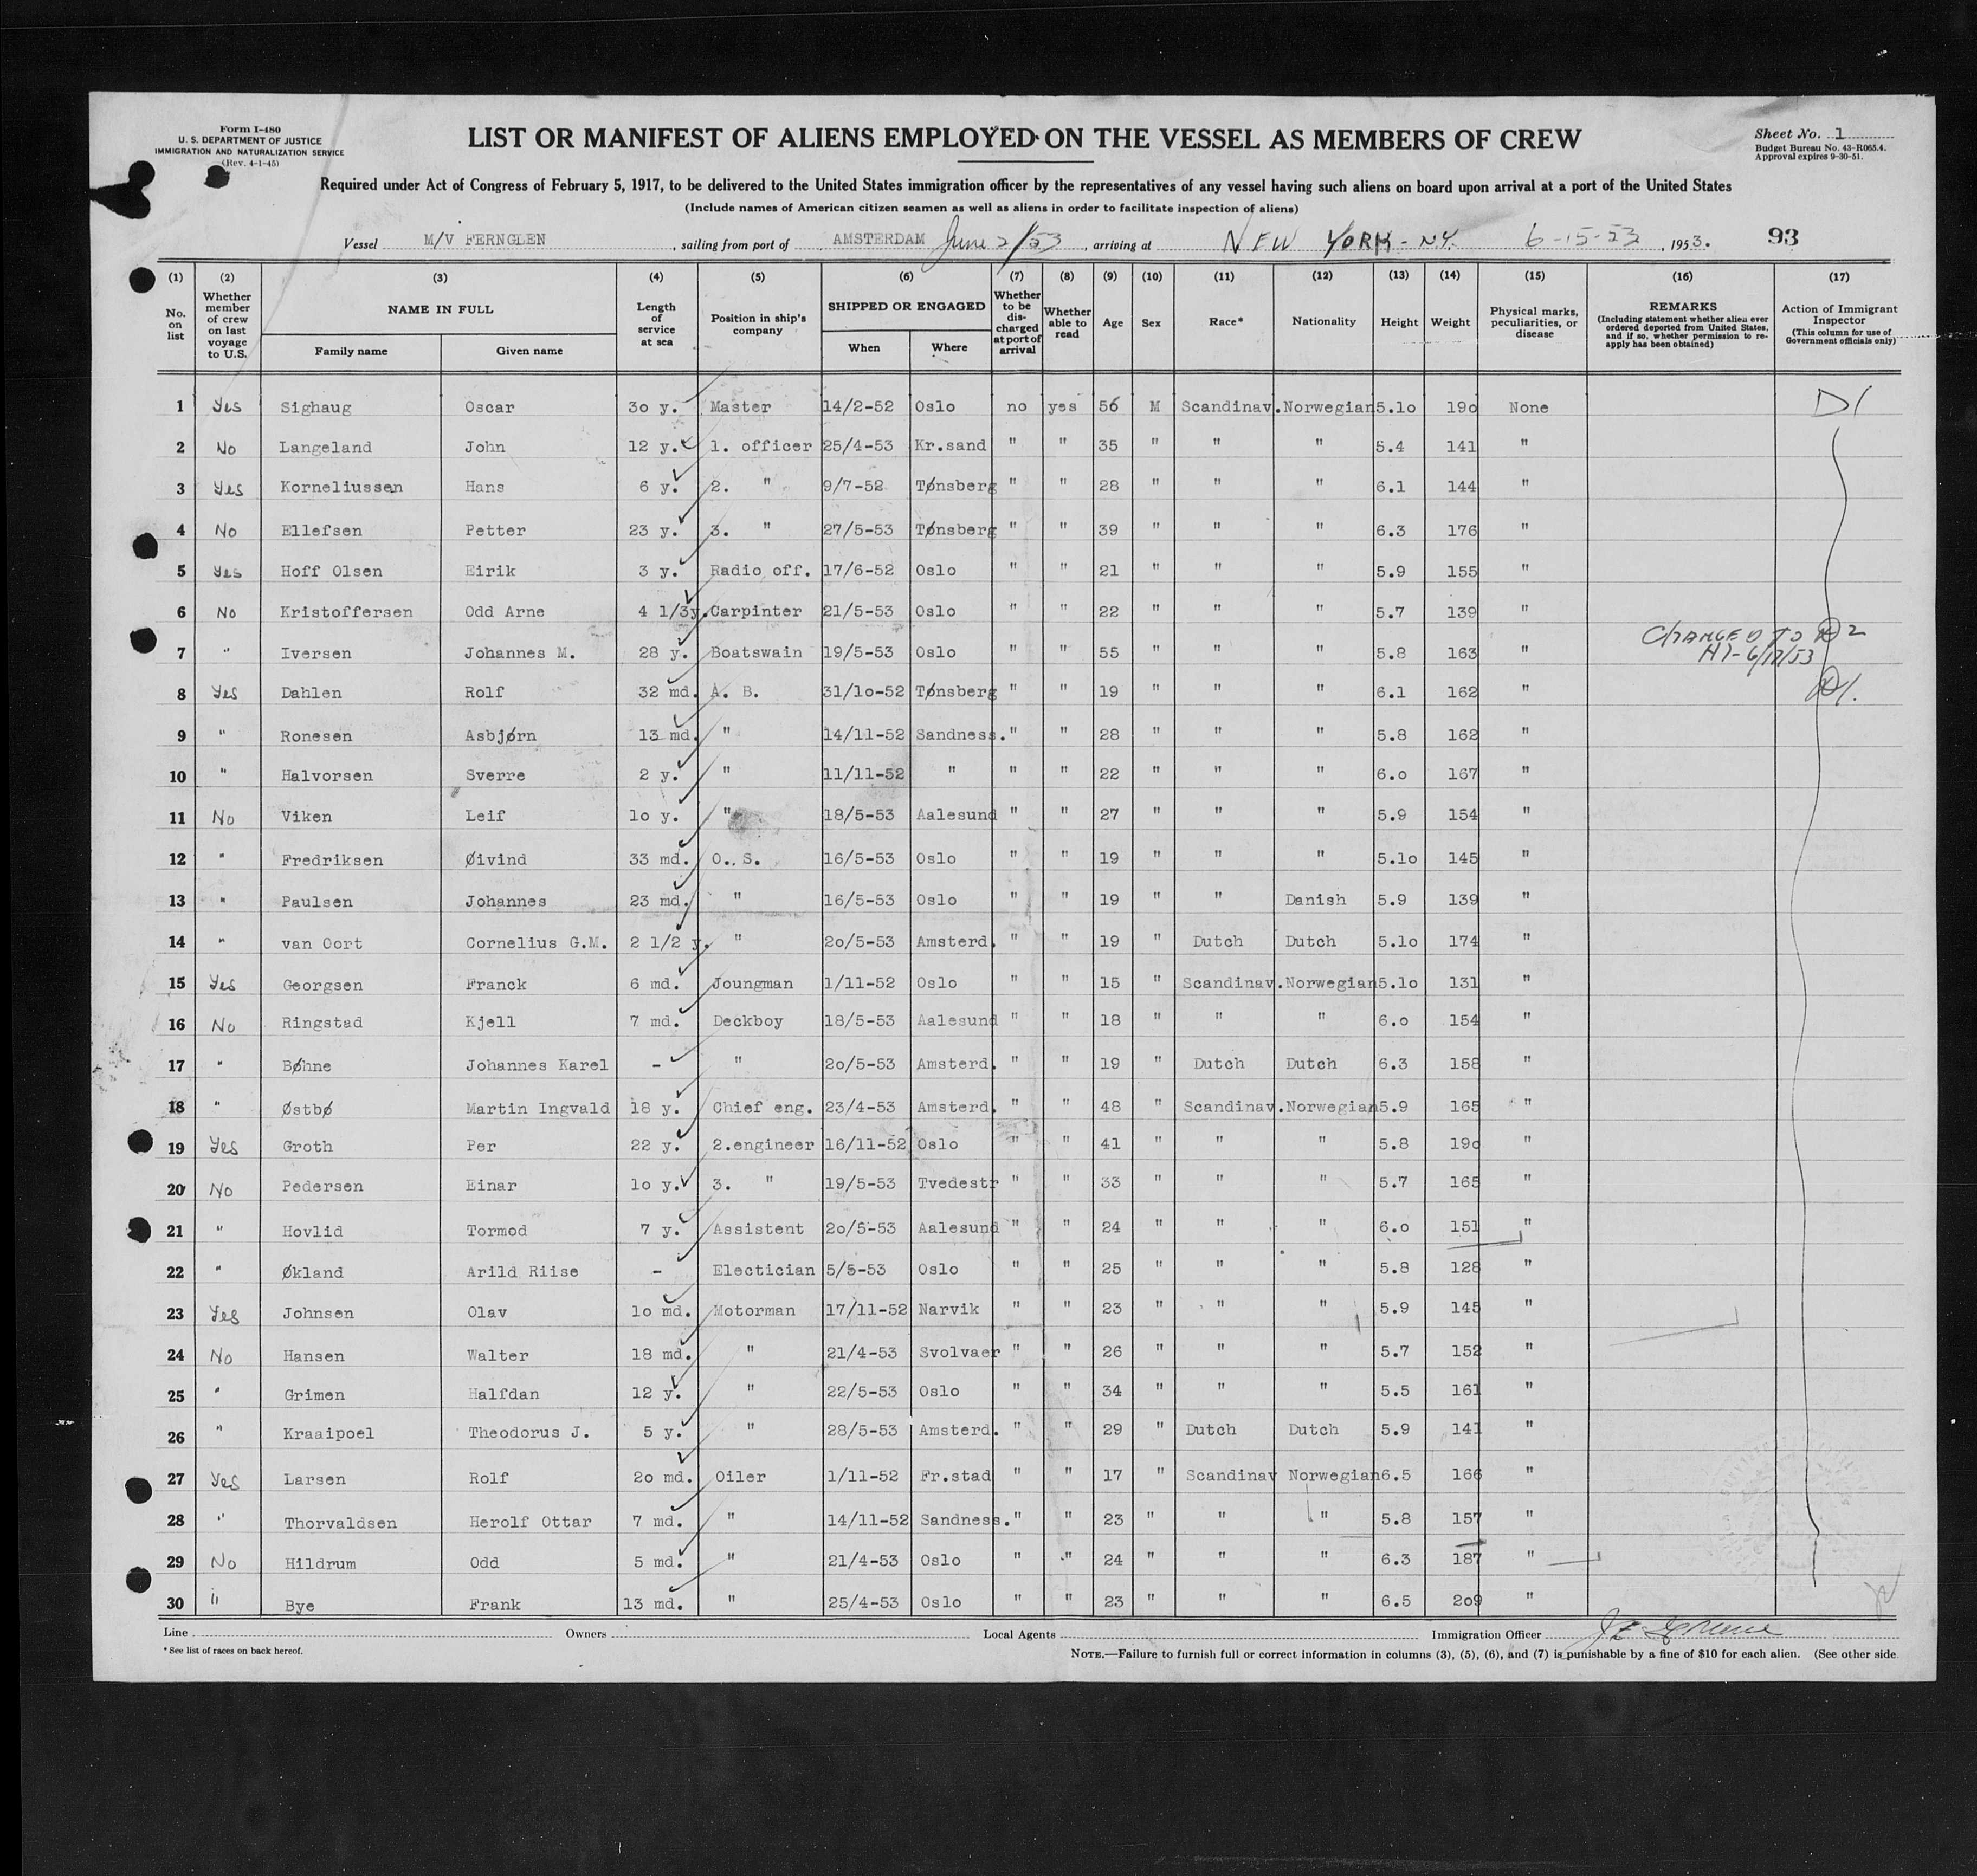 Form I-480
U. S. DEPARTMENT OF JUSTICE
IMMIGRATION AND NATURALIZATION SERVICE
(Rev. 4-1-45)
LIST OR MANIFEST OF ALIENS EMPLOYED ON THE VESSEL AS MEMBERS OF CREW
Sheet No. 1
Budget Bureau No. 43-R065.4.
Approval expires 9-30-51.
Required under Act of Congress of February 5, 1917, to be delivered to the United States immigration officer by the representatives of any vessel having such aliens on board upon arrival at a port of the United States
(Include names of American citizen seamen as well as aliens in order to facilitate inspection of aliens)
Vessel M/V FERNGLEN, sailing from port of AMSTERDAM June 2/53, arriving at NEW YORK - NY. 6-15-53, 1953. 93
(1) (2) (3) (4) (5) (6) (7) (8) (9) (10) (11) (12) (13) (14) (15) (16) (17)
No. on list
Whether member of crew on last voyage to U.S.
NAME IN FULL
Family name Given name
Length of service at sea
Position in ship's company
SHIPPED OR ENGAGED
When Where
Whether to be discharged at port of arrival
Whether able to read
Age
Sex
Race*
Nationality
Height
Weight
Physical marks, peculiarities, or disease
REMARKS
(Including statement whether alien ever ordered deported from United States, and if so, whether permission to reapply has been obtained)
Action of Immigrant Inspector
(This column for use of Government officials only)
1 Yes Sighaug Oscar 3o y. Master 14/2-52 Oslo no yes 56 M Scandinav. Norwegian 5.1o 19o None D1
2 No Langeland John 12 y. 1. officer 25/4-53 Kr.sand " " 35 " " " 5.4 141 "
3 Yes Korneliussen Hans 6 y. 2. " 9/7-52 Tønsberg " " 28 " " " 6.1 144 "
4 No Ellefsen Petter 23 y. 3. " 27/5-53 Tønsberg " " 39 " " " 6.3 176 "
5 Yes Hoff Olsen Eirik 3 y. Radio off. 17/6-52 Oslo " " 21 " " " 5.9 155 "
6 No Kristoffersen Odd Arne 4 1/3y. Carpinter 21/5-53 Oslo " " 22 " " " 5.7 139 "
7 " Iversen Johannes M. 28 y. Boatswain 19/5-53 Oslo " " 55 " " " 5.8 163 " CHANGED TO D2
NY- 6/17/53
8 Yes Dahlen Rolf 32 md. A. B. 31/1o-52 Tønsberg " " 19 " " " 6.1 162 " D1.
9 " Ronesen Asbjørn 13 md. " 14/11-52 Sandness. " " 28 " " " 5.8 162 "
10 " Halvorsen Sverre 2 y. " 11/11-52 " " " 22 " " " 6.o 167 "
11 No Viken Leif 1o y. " 18/5-53 Aalesund " " 27 " " " 5.9 154 "
12 " Fredriksen Øivind 33 md. O. S. 16/5-53 Oslo " " 19 " " " 5.1o 145 "
13 " Paulsen Johannes 23 md. " 16/5-53 Oslo " " 19 " " Danish 5.9 139 "
14 " van Oort Cornelius G.M. 2 1/2 y. " 2o/5-53 Amsterd. " " 19 " Dutch Dutch 5.1o 174 "
15 Yes Georgsen Franck 6 md. Joungman 1/11-52 Oslo " " 15 " Scandinav. Norwegian 5.1o 131 "
16 No Ringstad Kjell 7 md. Deckboy 18/5-53 Aalesund " " 18 " " " 6.o 154 "
17 " Bøhne Johannes Karel - " 2o/5-53 Amsterd. " " 19 " Dutch Dutch 6.3 158 "
18 " Østbø Martin Ingvald 18 y. Chief eng. 23/4-53 Amsterd. " " 48 " Scandinav. Norwegian 5.9 165 "
19 Yes Groth Per 22 y. 2.engineer 16/11-52 Oslo " " 41 " " " 5.8 19o "
20 No Pedersen Einar 1o y. 3. " 19/5-53 Tvedestr " " 33 " " " 5.7 165 "
21 " Hovlid Tormod 7 y. Assistent 2o/5-53 Aalesund " " 24 " " " 6.o 151 "
22 " Økland Arild Riise - Electician 5/5-53 Oslo " " 25 " " " 5.8 128 "
23 Yes Johnsen Olav 1o md. Motorman 17/11-52 Narvik " " 23 " " " 5.9 145 "
24 No Hansen Walter 18 md. " 21/4-53 Svolvaer " " 26 " " " 5.7 152 "
25 " Grimen Halfdan 12 y. " 22/5-53 Oslo " " 34 " " " 5.5 161 "
26 " Kraaipoel Theodorus J. 5 y. " 28/5-53 Amsterd. " " 29 " Dutch Dutch 5.9 141 "
27 Yes Larsen Rolf 2o md. Oiler 1/11-52 Fr.stad " " 17 " Scandinav Norwegian 6.5 166 "
28 " Thorvaldsen Herolf Ottar 7 md. " 14/11-52 Sandness. " " 23 " " " 5.8 157 "
29 No Hildrum Odd 5 md. " 21/4-53 Oslo " " 24 " " " 6.3 187 "
30 " Bye Frank 13 md. " 25/4-53 Oslo " " 23 " " " 6.5 2o9 "
Line Owners Local Agents Immigration Officer
* See list of races on back hereof.
NOTE.—Failure to furnish full or correct information in columns (3), (5), (6), and (7) is punishable by a fine of $10 for each alien. (See other side